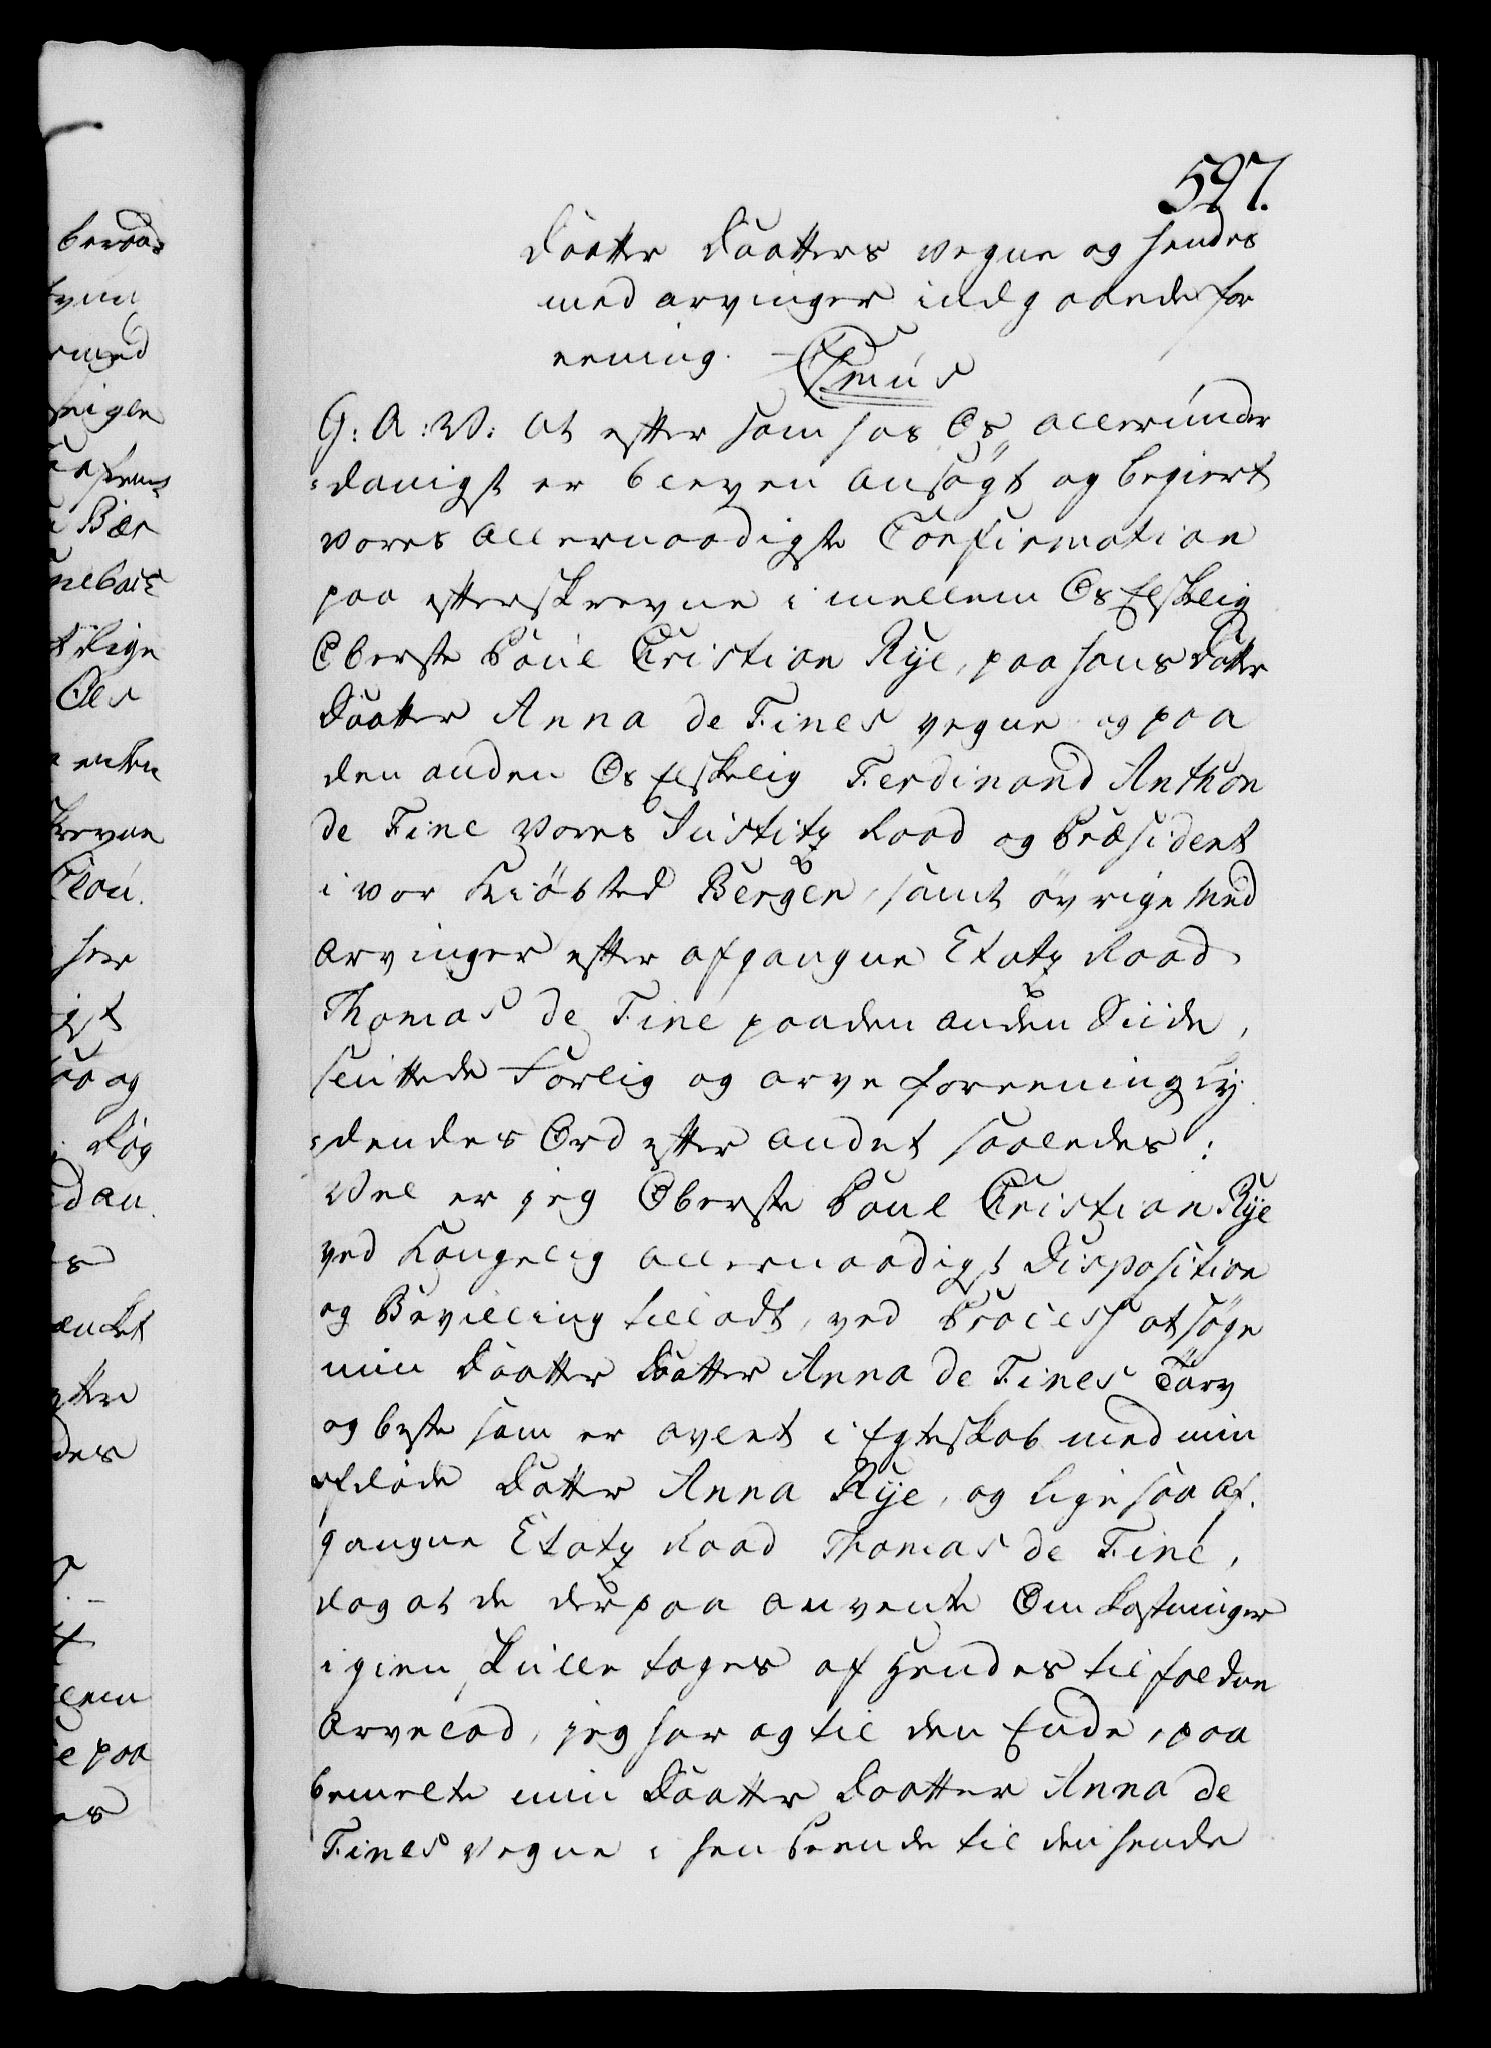 597.
Daatter Daatters vegne og hendes
med arvinger indgaaende for
eening. Cmus
G: A: V: At efter som hos Os allerunder
=danigst er bleven ansøgt og begiert
vores allernaadigste Confirmation
paa efterskrevne i mellem Os Elskelig
Oberste Poul Cristian Rÿe, paa hans Datter
Daatter Anna de Fines vegne og paa
den anden Os Elskelig Ferdinand Anthon
de Fine Vores Justitz Raad og Præsident
i vor Kiøbsted Bergen, samt øvrige Med
arvinger efter afgangne Etatz Raad
Thomas de Fine paa den anden Siide,
sluttede Forlig og arve foreening lÿ
=dendes Ord efter andet saaledes:
Vel er jeg Oberste Poul Cristian Rÿe
ved Kongelig allernaadigst Disposition
og Bevilling tilladt, ved Process at søge
min Daatter Daatter Anna de Fines Tarv
og beste som er avlet i Egteskab med min
afdøde Datter Anna Rÿe, og lige saa af.
gangne Etatz Raad Thomas de Fine,
dog at de derpaa anvente Omkostninger
igien skulle tages af hendes tilfaldne
Arvelod, jeg har og til den Ende, paa
bemelte min Daatter Daatter Anna de
Fines vegne i henseende til den hende
beraad=
Bær
lige
Oes
enten
krevne
her
og
Døg
dan
paa